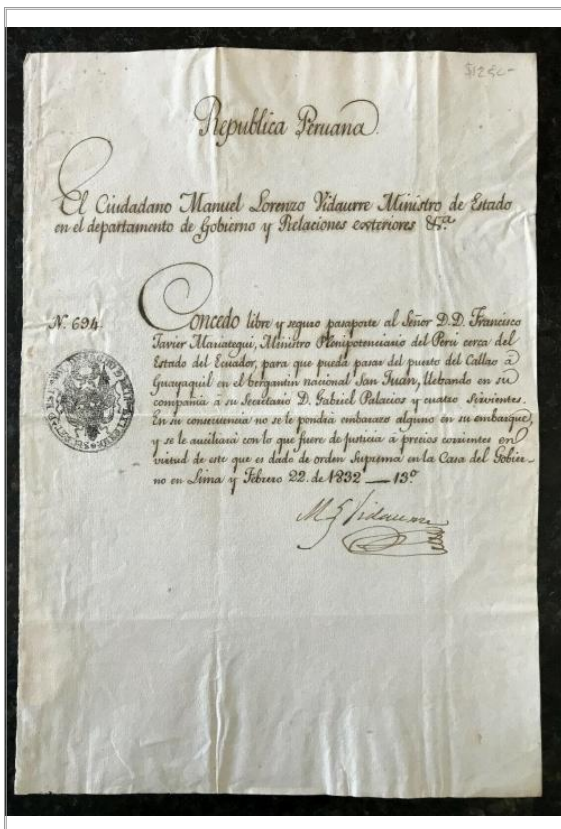 $1250-
Republica Peruana.
El Ciudadano Manuel Lorenzo Vidaurre Ministro de Estado
en el departamento de Gobierno y Relaciones exteriores &ª
N. 694.
Concedo libre y seguro pasaporte al Señor D.D. Francisco
Javier Mariategui, Ministro Plenipotenciario del Perú cerca del
Estado del Ecuador, para que pueda pasar del puerto del Callao á
Guayaquil en el bergantin nacional San Juan, llebando en su
compañia á su Secretario D. Gabriel Palacios y cuatro Sirvientes.
En su consecuencia no se le pondrá embarazo alguno en su embarque,
y se le auxiliará con lo que fuere de justicia á precios corrientes en
virtud de este que es dado de orden Suprema en la Casa del Gobier-
no en Lima y Febrero 22. de 1832 — 13º
M L Vidaurre